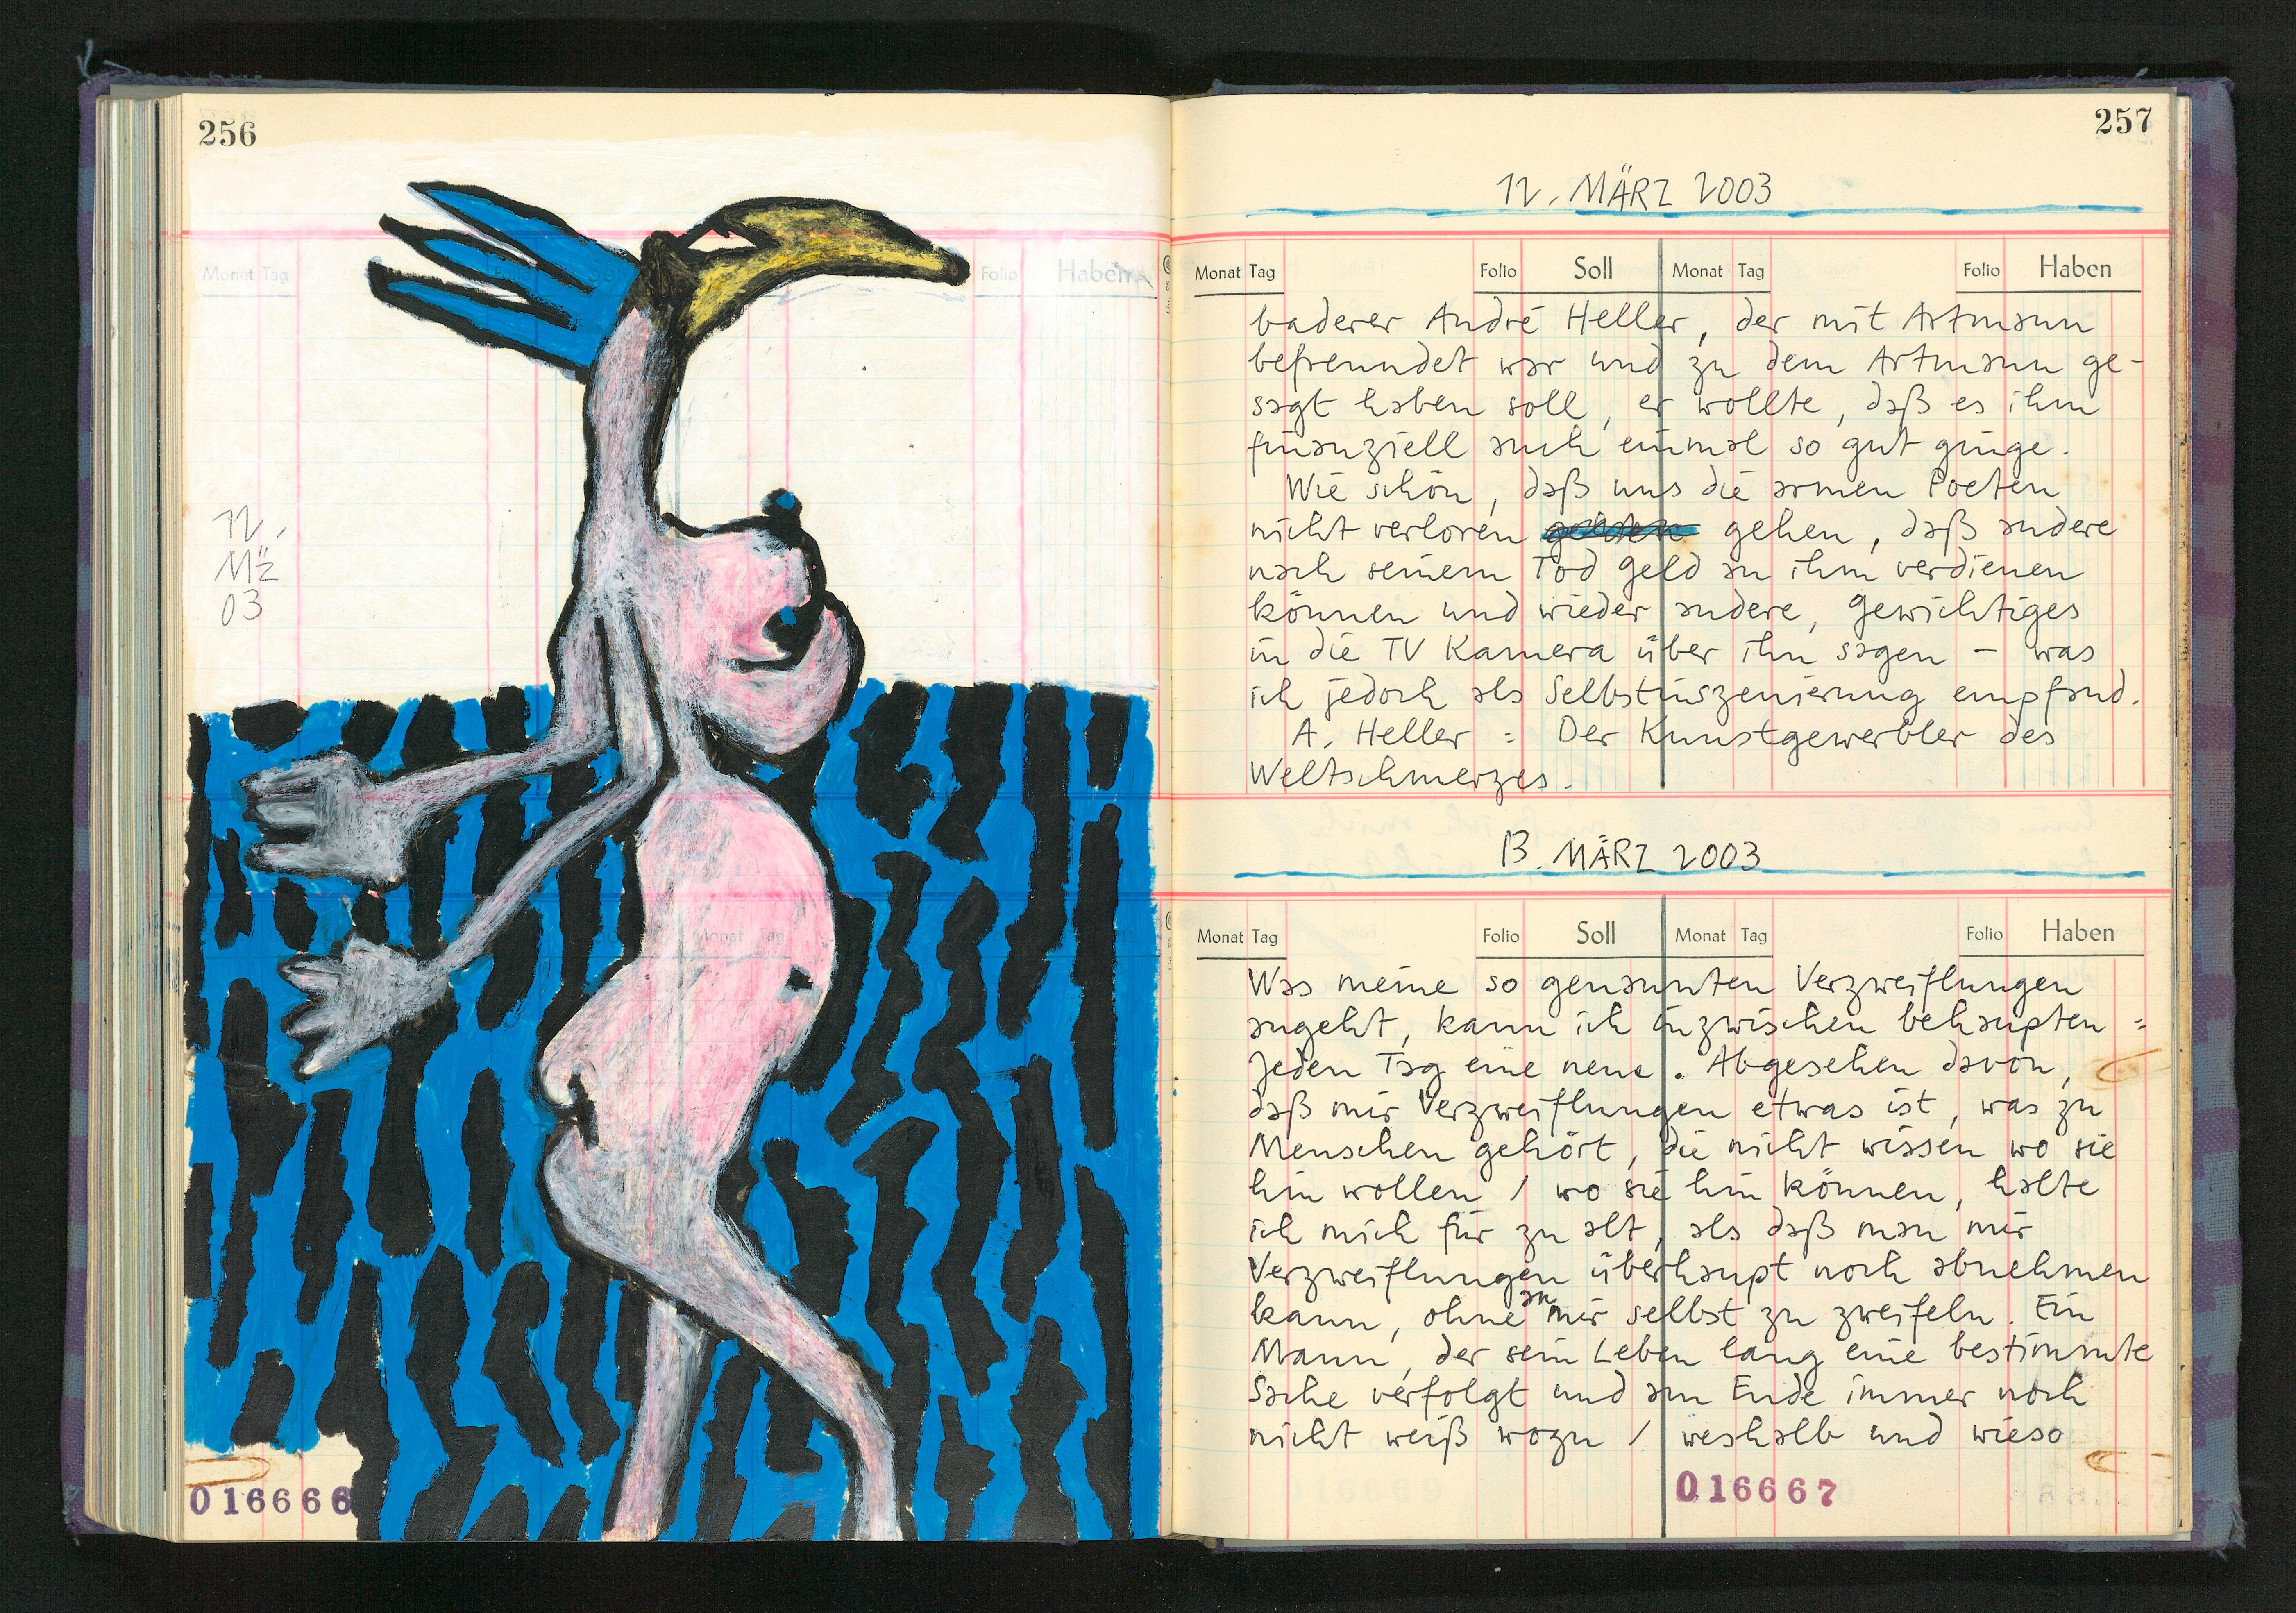 256
Monat Tag
Folio
Folio
Haben
12.
Mz
03
Monat Tag
016666
257
12. MÄRZ 2003
Monat Tag Folio Soll Monat Tag Folio Haben
baderer André Heller, der mit Artmann
befreundet war und zu dem Artmann ge-
sagt haben soll, er wollte, daß es ihm
finanziell auch einmal so gut ginge.
Wie schön, daß uns die armen Poeten
nicht verloren gehen, daß andere
nach seinem Tod Geld an ihm verdienen
können und wieder andere, gewichtiges
in die TV Kamera über ihn sagen – was
ich jedoch als Selbstinszenierung empfand.
A. Heller = Der Kunstgewerbler des
Weltschmerzes.
13. MÄRZ 2003
Monat Tag Folio Soll Monat Tag Folio Haben
Was meine so genannten Verzweiflungen
angeht, kann ich inzwischen behaupten =
Jeden Tag eine neue. Abgesehen davon,
daß mir Verzweiflungen etwas ist, was zu
Menschen gehört, die nicht wissen wo sie
hin wollen / wo sie hin können, halte
ich mich für zu alt, als daß man mir
Verzweiflungen überhaupt noch abnehmen
kann, ohne an mir selbst zu zweifeln. Ein
Mann, der sein Leben lang eine bestimmte
Sache verfolgt und am Ende immer noch
nicht weiß wozu / weshalb und wieso
016667